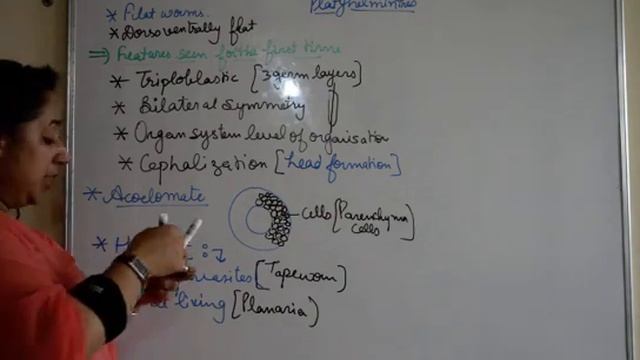 Platyhelminthes
* Flat worms.
* Dorsoventrally flat
⇒ Features seen for the first time
* Triploblastic [3 germ layers]
* Bilateral symmetry
* Organ system level of organisation
* Cephalization [head formation]
* Acoelomate
cells [Parenchyma cells]
* H
[Tapeworm]
living [Planaria]